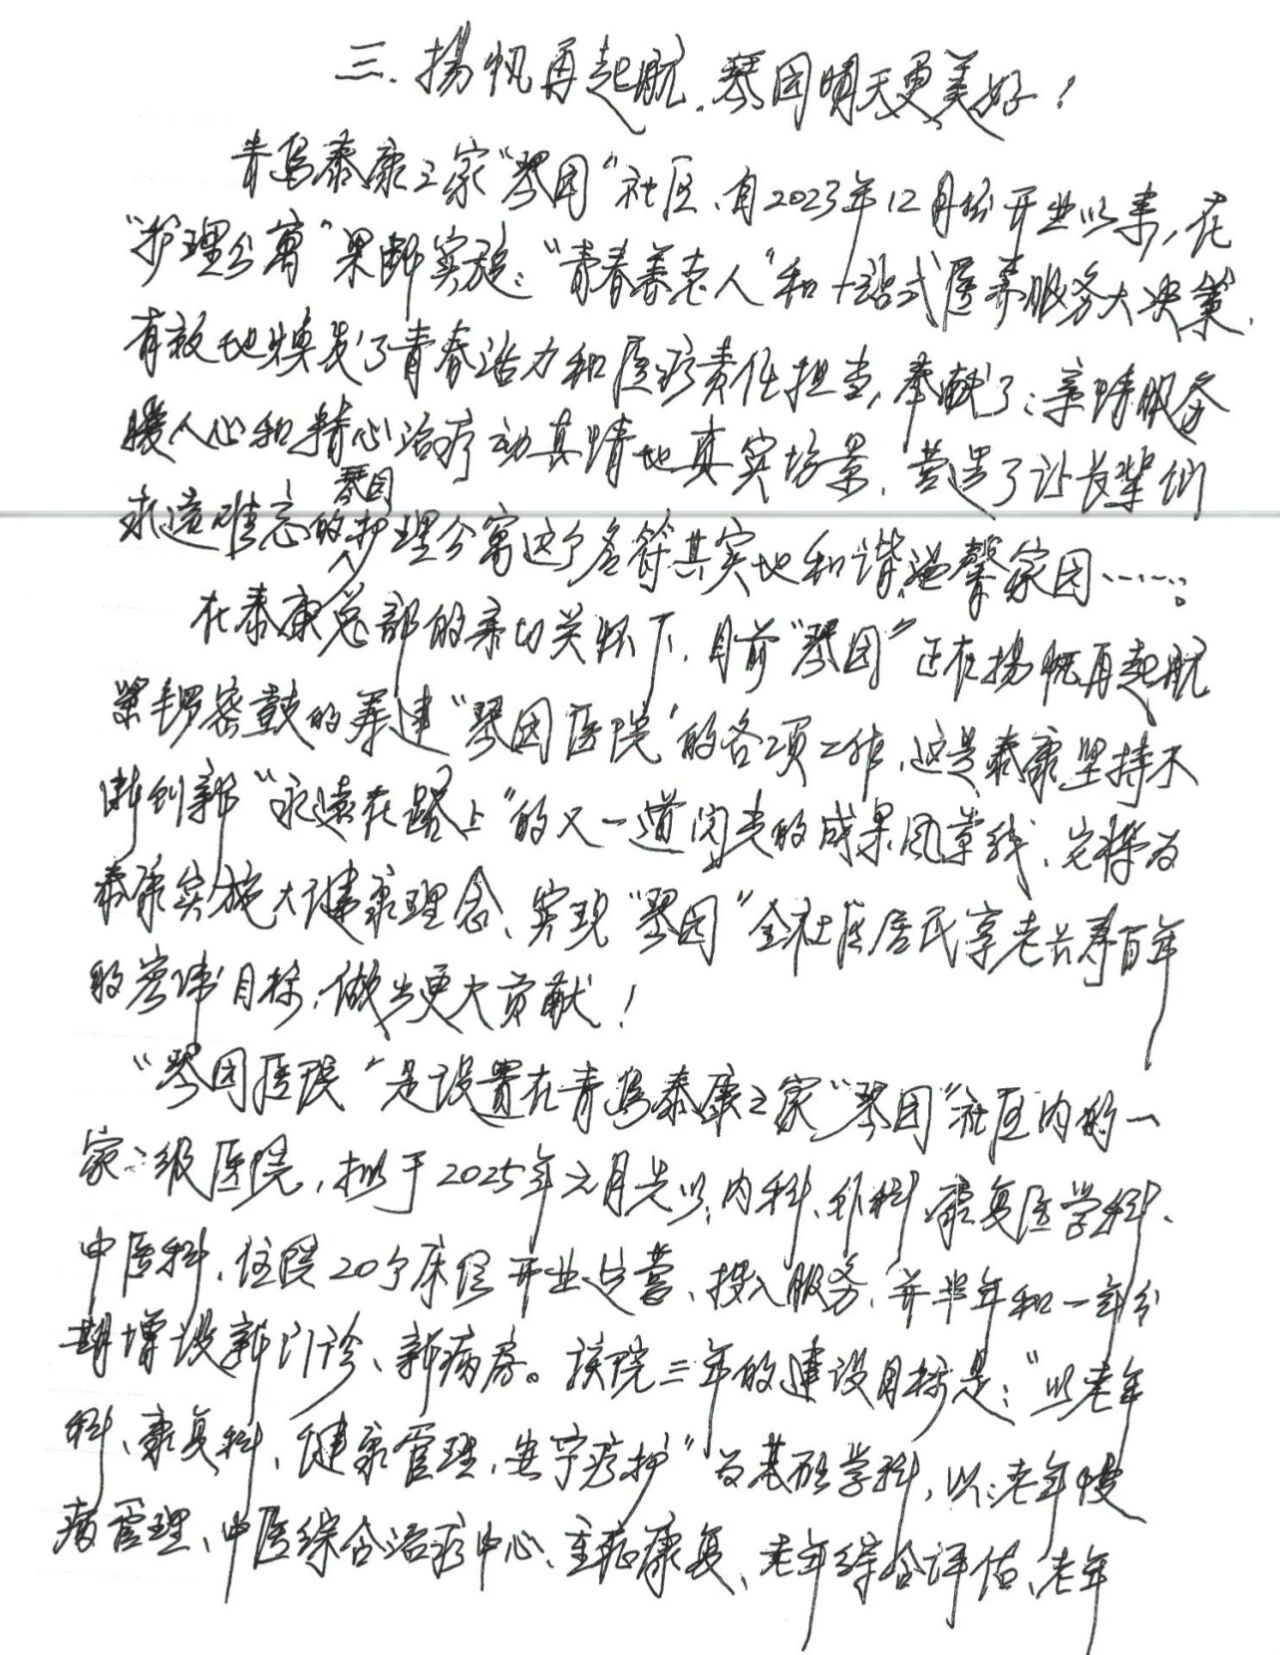 三.扬帆再起航.琴园明天更美好!
青岛泰康之家“琴园”社区,自2023年12月份开业以来,在
“护理公寓”果断实施:“青春养老人”和一站式医养服务大决策.
有效地焕发了青春活力和医疗责任担当,奉献了:亲情服务
暖人心和精心治疗动真情地真实场景.营造了让长辈们
永远难忘的琴园护理公寓这个名符其实地和谐温馨家园……。
在泰康总部的亲切关怀下.目前“琴园”正在扬帆再起航
紧锣密鼓的筹建“琴园医院”的各项工作.这是泰康坚持不
断创新“永远在路上”的又一道闪光的成果风景线.它将为
泰康实施大健康理念、实现“琴园”全社区居民享老长寿百年
的宏伟目标.做出更大贡献!
“琴园医院”是设置在青岛泰康之家“琴园”社区内的一
家二级医院,拟于2025年元月先以:内科、外科、康复医学科、
中医科,住院20个床位开业运营、投入服务,并半年和一年分
期增设新门诊、新病房。该院三年的建设目标是:“以老年
科、康复科、健康管理,安宁疗护”为基础学科,以:老年慢
病管理、中医综合治疗中心、重症康复、老年综合评估、老年